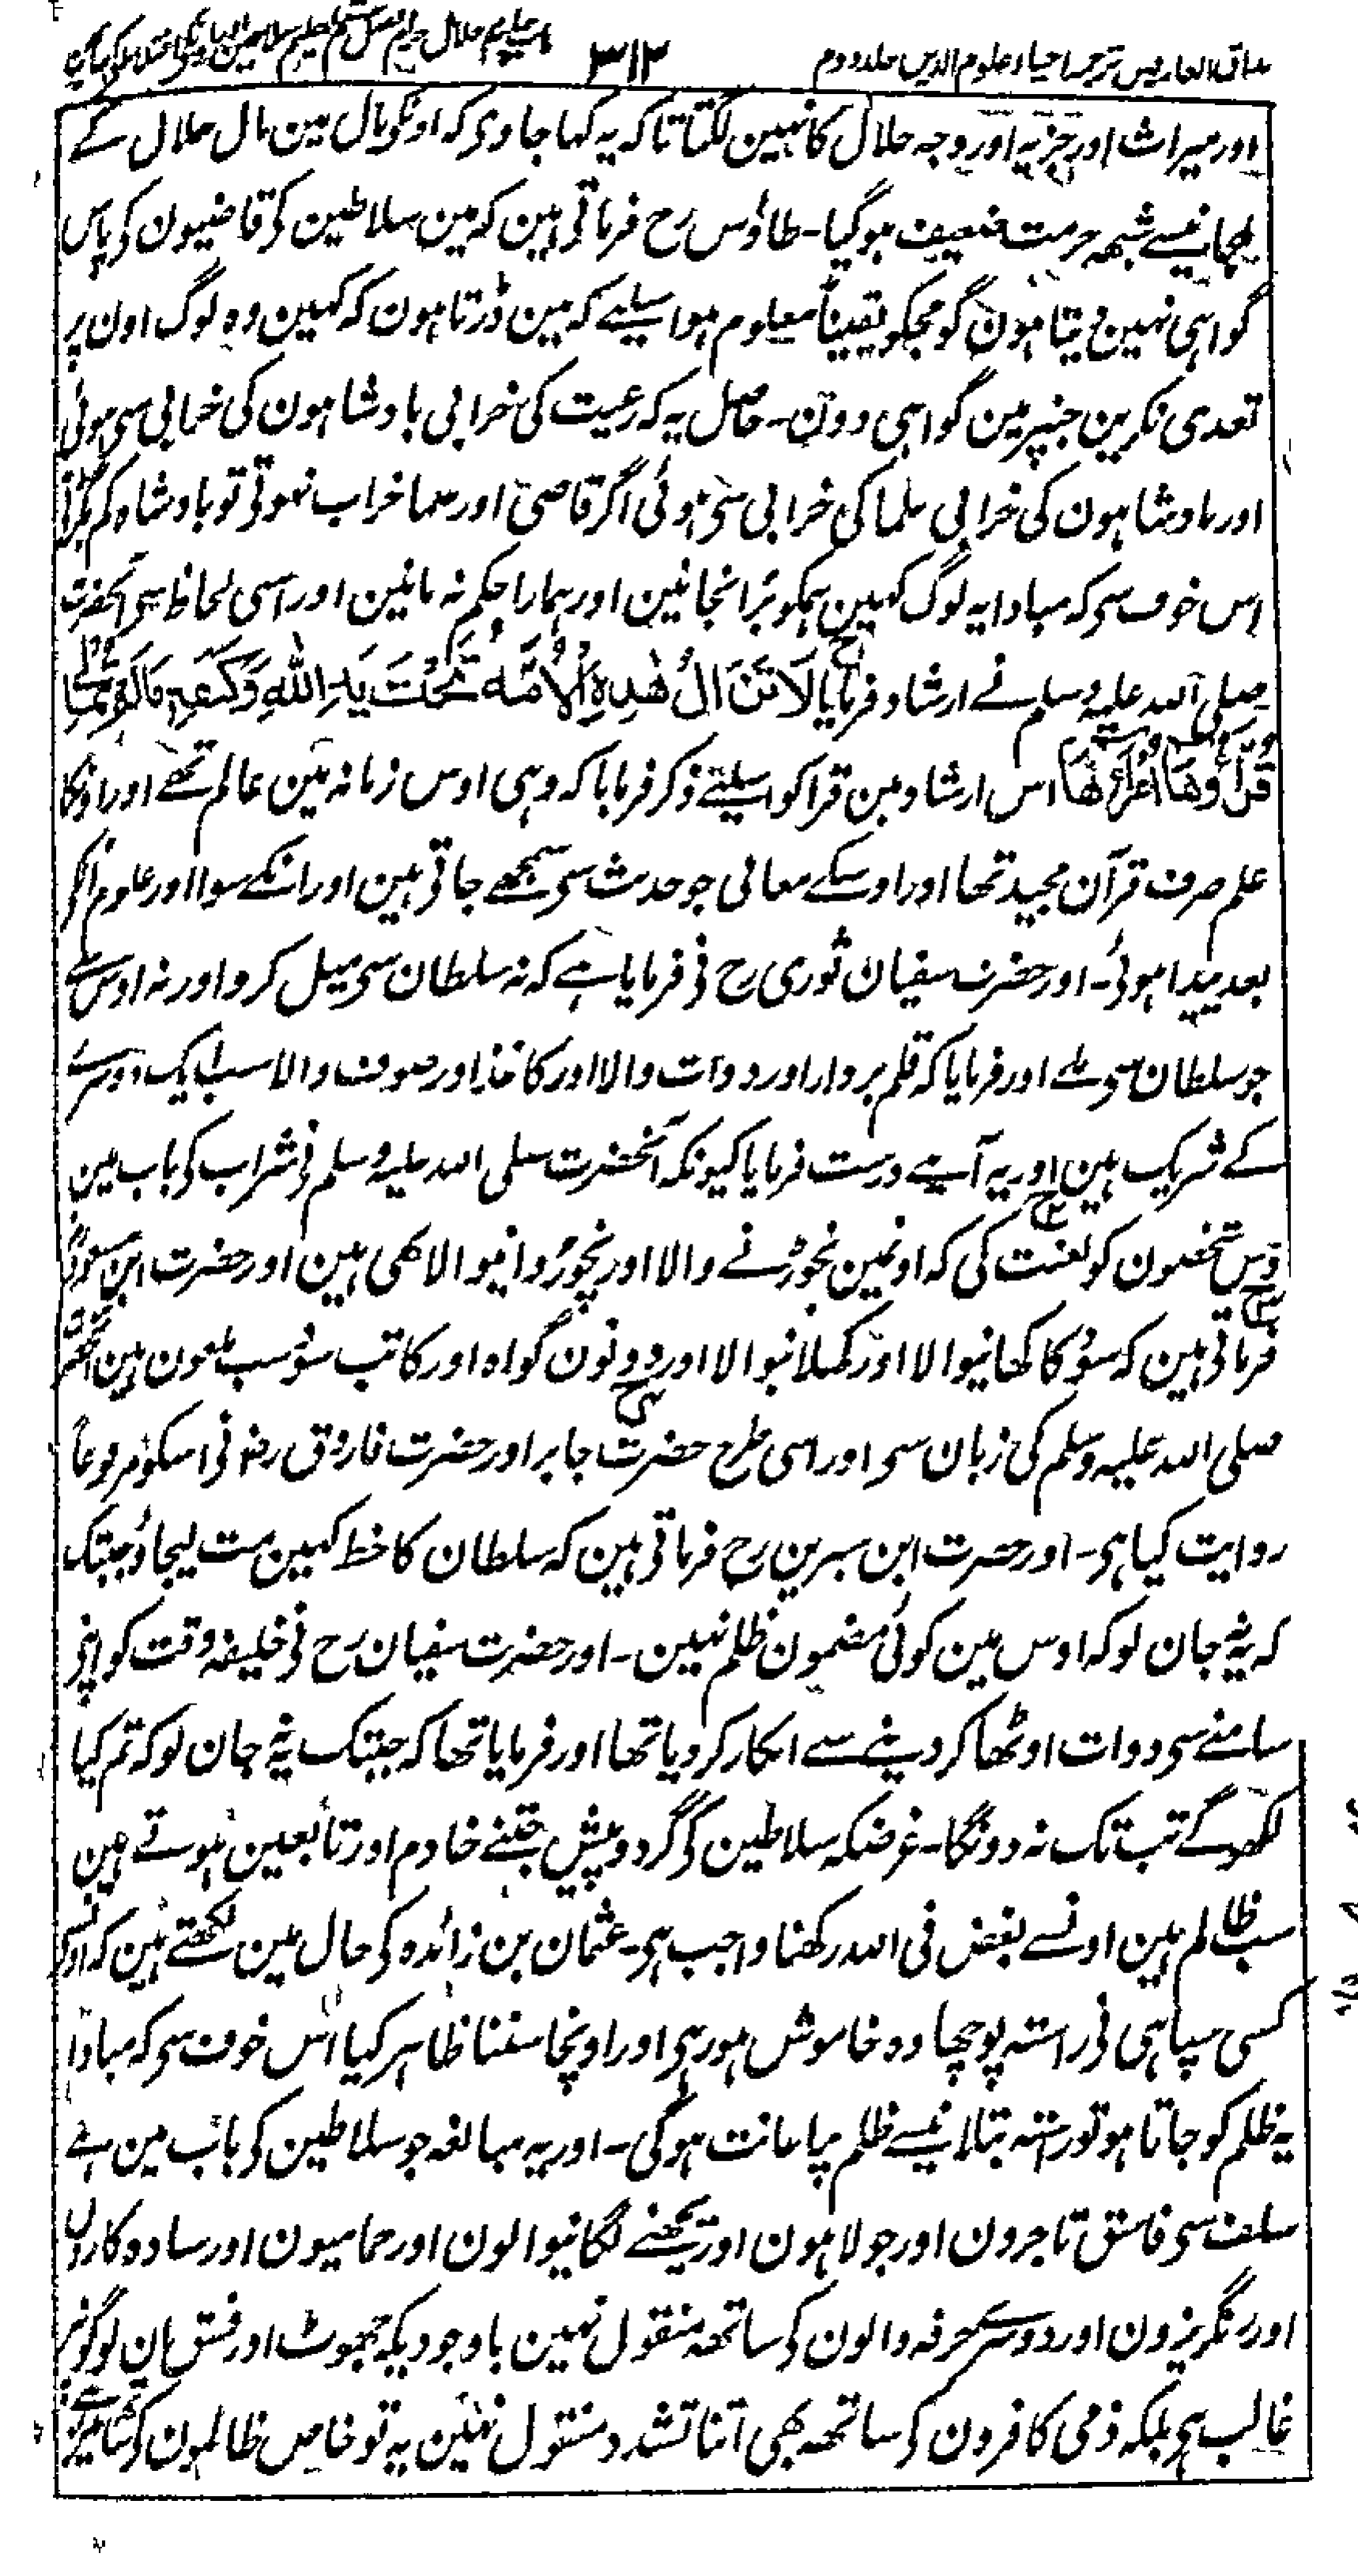 مذاق العارفین ترجمہ احیاء علوم الدین جلد دوم
۳۱۲
اور میراث اور جزیہ اور وجہ حلال کا نہین لگتا تاکہ یہ کہا جاوی کہ اونکو مال مین مال حلال کے
شبہہ حرمت ضعیف ہوگیا۔ طاؤس رح فرماتی ہین کہ مین سلاطین کی قاضیون کی پاس
گواہی نہین دیتا ہون گو مجکو یقیناً معلوم ہو اسلیے کہ مین ڈرتا ہون کہ کہین وہ لوگ اون پر
تعدی نکرین جنپر مین گواہی دون۔ حاصل یہ کہ رعیت کی خرابی بادشاہون کی خرابی سی ہوئی
اور بادشاہون کی خرابی علما کی خرابی سی ہوئی اگر قاضی اور علما خراب نہوتی تو بادشاہ کم بگڑتے
اس خوف سی کہ مبادا یہ لوگ کہین ہمکو بُرا نجانین اور ہمارا حکم نہ مانین اور اسی لحاظ سی آنحضرت
صلی اللہ علیہ وسلم نے ارشاد فرمایا لَا تَزَالُ هٰذِهِ الْاُمَّةُ تَحْتَ يَدِ اللهِ وَكَنَفِهٖ مَا لَمْ
قُرَّاؤُهَا اُمَرَاءَهَا اس ارشاد مین قرا کو اسلیے ذکر فرمایا کہ وہی اوس زمانہ مین عالم تھے اور اونکا
علم صرف قرآن مجید تھا اور اوسکے معانی جو حدیث سی سمجھے جاتی ہین اور انکے سوا اور علوم انکے
بعد پیدا ہوئی۔ اور حضرت سفیان ثوری رح نی فرمایا ہے کہ نہ سلطان سی میل کرو اور نہ اوس سے
جو سلطان سی ملے اور فرمایا کہ قلم بردار اور دوات والا اور کاغذ اور صوف والا سب ایک دوسرے
کے شریک ہین اور یہ آپنے درست فرمایا کیونکہ آنحضرت صلی اللہ علیہ وسلم نی شراب کی باب مین
دس شخصون کو لعنت کی کہ اونمین نچوڑنے والا اور نچوڑوانیوالا بھی ہین اور حضرت ابن مسعود
فرماتی ہین کہ سود کا کھانیوالا اور کھلانیوالا اور دونون گواہ اور کاتب سود سب ملعون ہین آنحضرت
صلی اللہ علیہ وسلم کی زبان سی اور اسی طرح حضرت جابر اور حضرت فاروق رضو نی اسکو مرفوعاً
روایت کیا ہی۔ اور حضرت ابن سیرین رح فرماتی ہین کہ سلطان کا خط کہین مت لیجاؤ جبتک
کہ یہ نہ جان لو کہ اوس مین کوئی مضمون ظلم نہین۔ اور حضرت سفیان رح نی خلیفہ وقت کو اپنی
سامنے سی دوات اوٹھا کر دینے سے انکار کر دیا تھا اور فرمایا تھا کہ جبتک یہ نہ جان لو کہ تم کیا
لکھوگے تب تک نہ دونگا۔ غرضکہ سلاطین کی گرد و پیش جتنے خادم اور تابعین ہوتے ہین
سب ظالم ہین اونسے بغض فی اللہ رکھنا واجب ہی۔ عثمان بن زائدہ کی حال مین لکھتے ہین کہ اونسے
کسی سپاہی نی راستہ پوچھا وہ خاموش ہو رہی اور اونچا سننا ظاہر کیا اس خوف سی کہ مبادا
یہ ظلم کو جاتا ہو تو رستہ بتلانیسے ظلم پر اعانت ہوگی۔ اور یہ مبالغہ جو سلاطین کی باب مین ہے
سلف سی فاسق تاجرون اور جولاہون اور پچھنے لگانیوالون اور حمامیون اور سادہ کارون
اور رنگریزون اور دوسرے حرفہ والون کی ساتھ منقول نہین باوجودیکہ جھوٹ اور فسق ان لوگونپر
غالب ہی بلکہ ذمی کافرون کی ساتھ بھی اتنا تشدد منقول نہین یہ تو خاص ظالمون کی